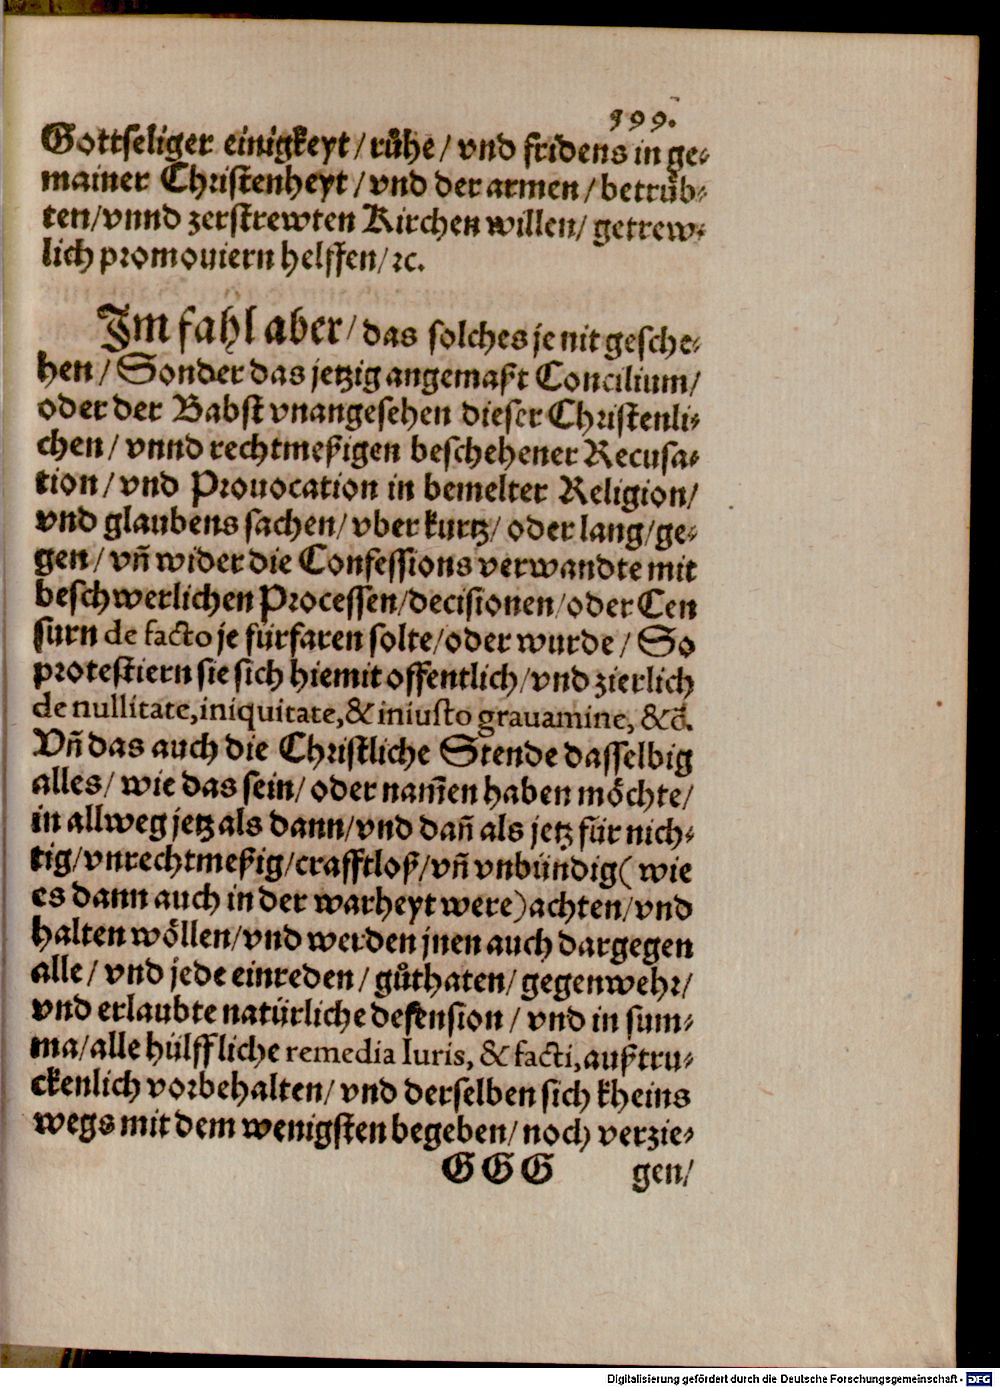 399.
Gottseliger einigkeyt/ růhe/ vnd fridens in ge⸗
mainer Christenheyt/ vnd der armen/ betrůb⸗
ten/ vnnd zerstrewten Kirchen willen/ getrew⸗
lich promouiern helffen/ ꝛc.
Im fahl aber/ das solches je nit gesche⸗
hen/ Sonder das jetzig angemaßt Concilium/
oder der Babst vnangesehen dieser Christenli⸗
chen/ vnnd rechtmeßigen beschehener Recusa⸗
tion/ vnd Prouocation in bemelter Religion/
vnd glaubens sachen/ vber kurtz/ oder lang/ ge⸗
gen/ vñ wider die Confessions verwandte mit
beschwerlichen Processen/ decisionen/ oder Cen
surn de facto je fürfaren solte/ oder wurde/ So
protestiern sie sich hiemit offentlich/ vnd zierlich
de nullitate, iniquitate, & iniusto grauamine, &c̄.
Vñ das auch die Christliche Stende dasselbig
alles/ wie das sein/ oder nam̃en haben möchte/
in allweg jetz als dann/ vnd dañ als jetz für nich⸗
tig/ vnrechtmeßig/ crafftloß/ vñ vnbündig (wie
es dann auch in der warheyt were) achten/ vnd
halten wöllen/ vnd werden jnen auch dargegen
alle/ vnd jede einreden/ gůthaten/ gegenwehr/
vnd erlaubte natürliche defension/ vnd in sum⸗
ma/ alle hülffliche remedia Iuris, & facti, außtru⸗
ckenlich vorbehalten/ vnd derselben sich kheins
wegs mit dem wenigsten begeben/ noch verzie⸗
GGG gen/
Digitalisierung gefördert durch die Deutsche Forschungsgemeinschaft - DFG